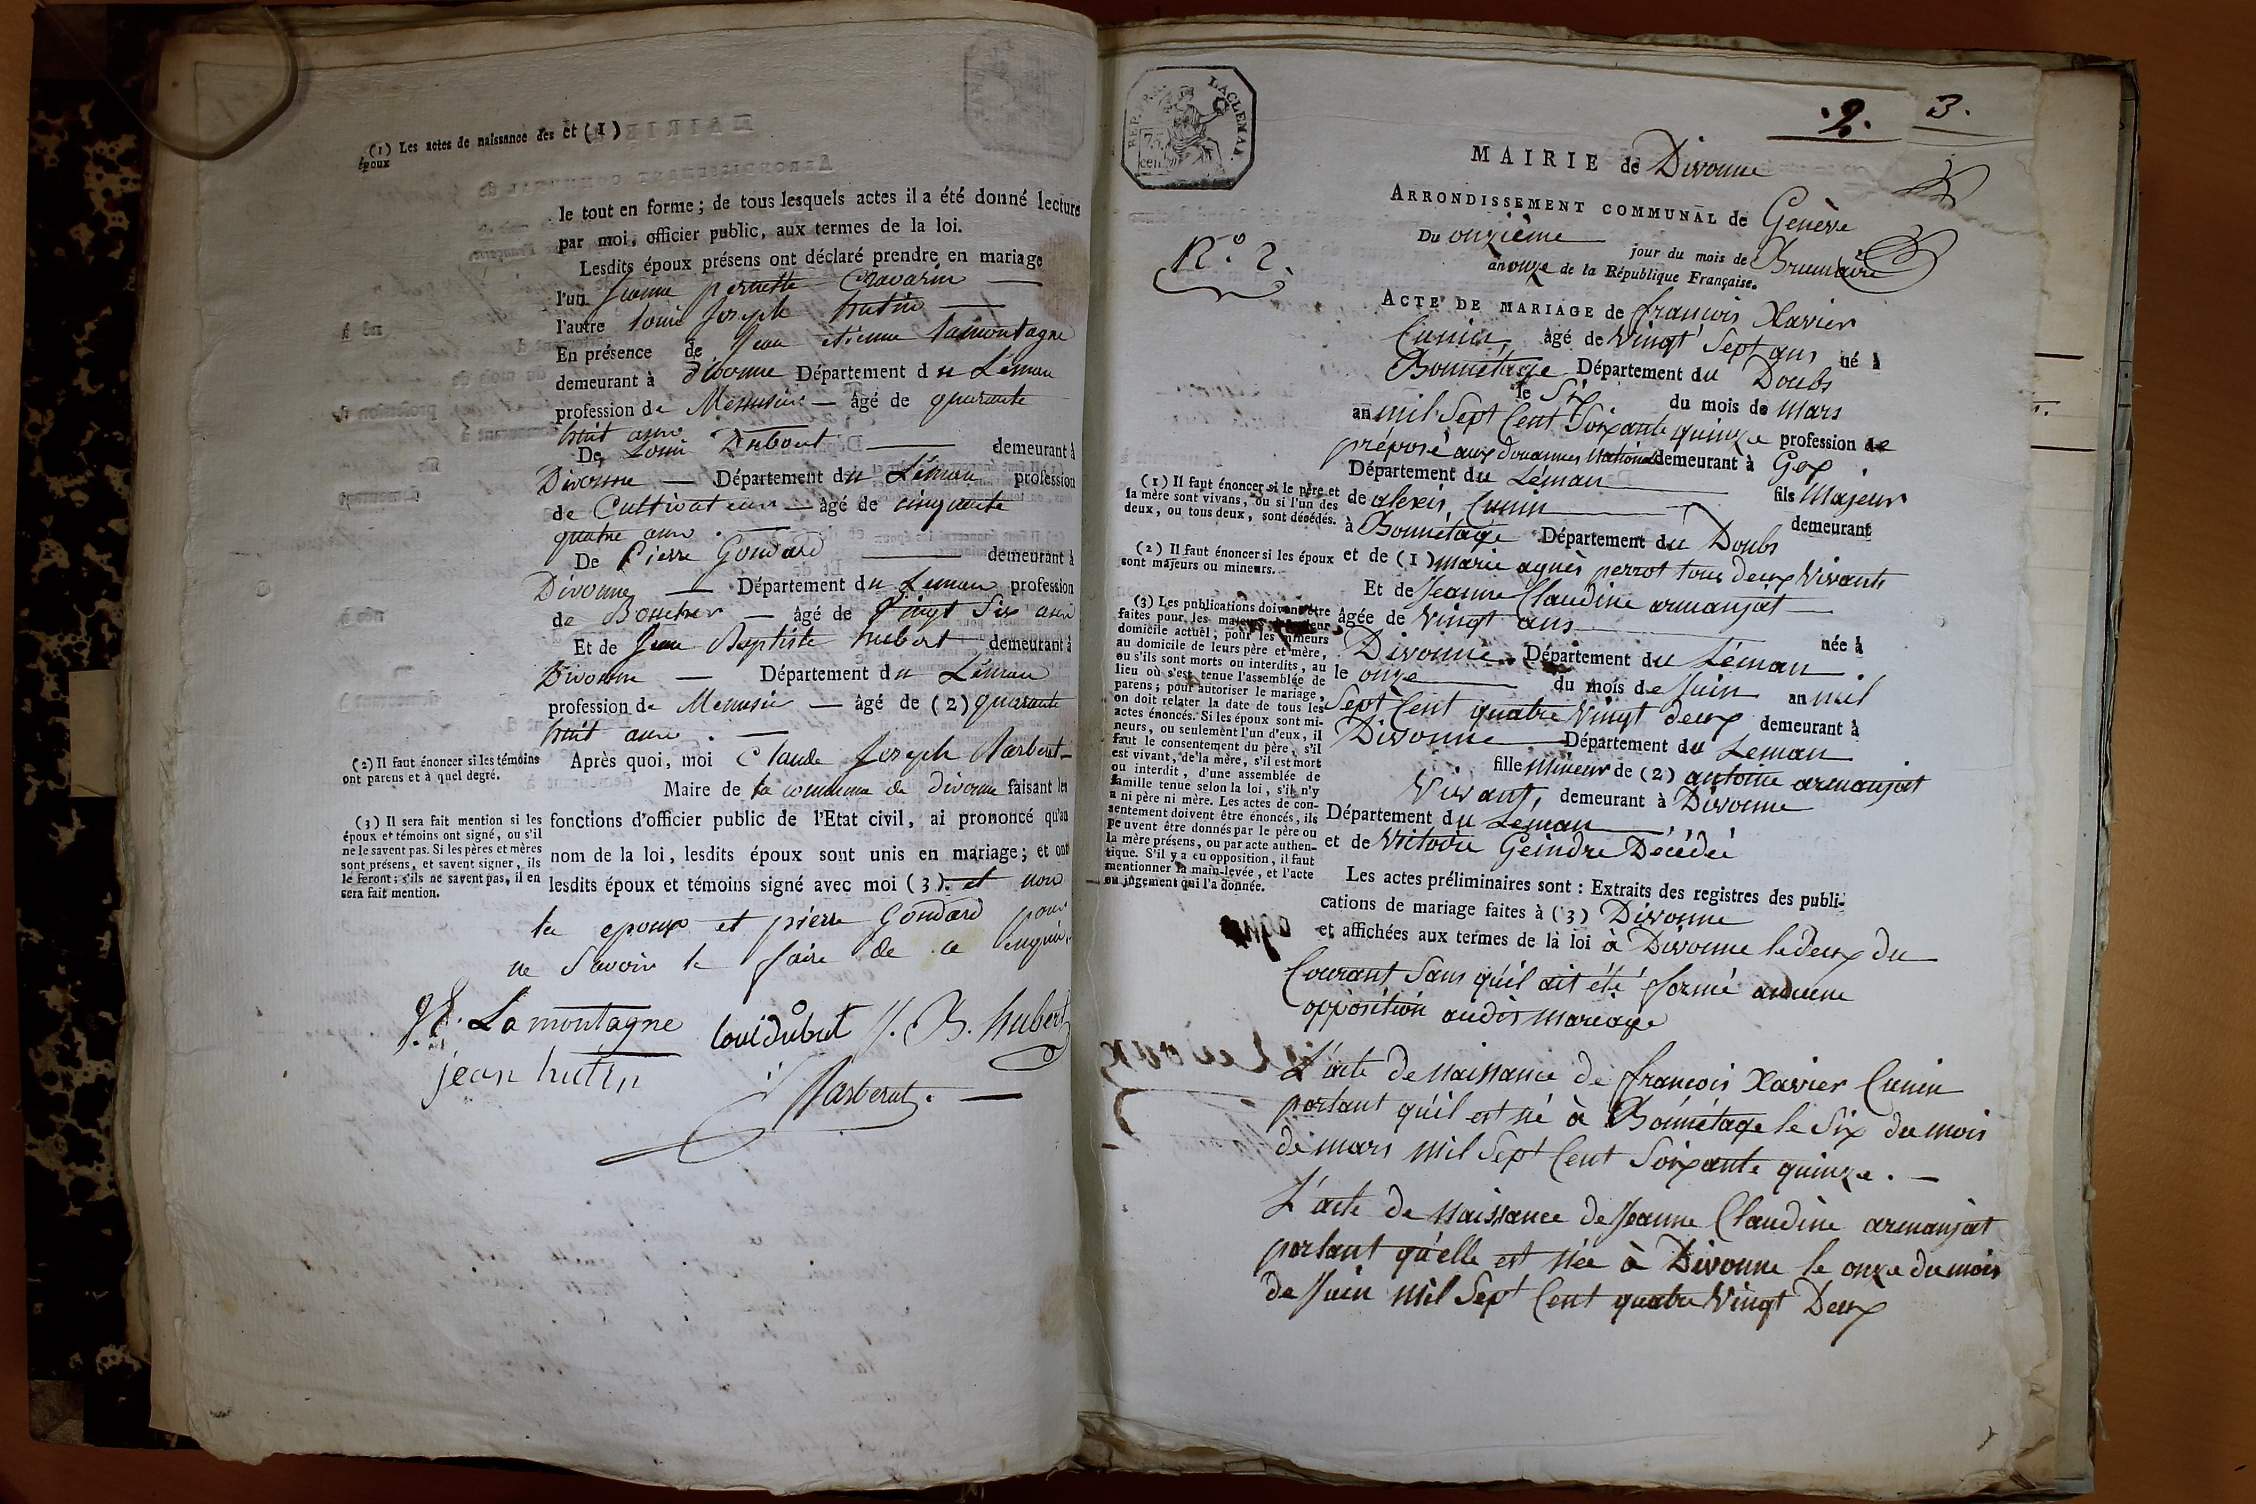 (1) Les actes de naissance des et (1)
époux
le tout en forme; de tous lesquels actes il a été donné lecture
par moi, officier public, aux termes de la loi.
Lesdits époux présens ont déclaré prendre en mariage
l'un Jeanne pernette Cravarin
l'autre louis Joseph hutin
En présence de Jean etienne lamontagne
demeurant à divonne Département du Léman
profession de Menusier âgé de quarante
huit ans
De Louis Dubout demeurant à
Divonne Département du Léman profession
de Cultivateur âgé de cinquante
quatre ans.
De Pierre Goudard demeurant à
Divonne Département du Leman profession
de Boucher âgé de Vingt Six ans
Et de Jean Baptiste hubert demeurant à
Divonne Département du Léman
profession de Menusier âgé de (2) quarante
huit ans.
(2) Il faut énoncer si les témoins
ont parens et à quel degré.
Après quoi, moi Claude Joseph Barberat
Maire de la commune de divonne faisant les
fonctions d'officier public de l'Etat civil, ai prononcé qu'au
nom de la loi, lesdits époux sont unis en mariage; et ont
lesdits époux et témoins signé avec moi (3). et non
(3) Il sera fait mention si les
époux et témoins ont signé, ou s'il
ne le savent pas. Si les pères et mères
sont présens, et savent signer, ils
le feront; s'ils ne savent pas, il en
sera fait mention.
les epoux et pierre Goudard pour
ne Savoir le faire de ce enquis.
J. E. Lamontagne loui dubut J. B. hubert
jean hutin
Barberat.
REP. FRA. 75 cen. LACLEMAN.
.2. 3.
MAIRIE de Divonne
ARRONDISSEMENT COMMUNAL de Genève
N.º 2.
Du onzième jour du mois de Brumaire
an onze de la République Française.
ACTE DE MARIAGE de françois Xavier
Cunin, âgé de Vingt Sept ans né à
Bonnétage Département du Doubs
le Six du mois de Mars
an mil Sept Cent Soixante quinze profession de
préposé aux Douannes Nationales demeurant à Gex
Département du Léman fils Majeur
de alexis Cunin demeurant
à Bonnétage Département du Doubs
et de (1) marie agnès perrot tous deux Vivants
Et de Jeanne Claudine armanjat
âgée de Vingt ans née à
Divonne Département du Léman
le onze du mois de Juin an mil
Sept Cent quatre Vingt deux demeurant à
Divonne Département du Leman
fille Mineur de (2) antoine armanjat
Vivant, demeurant à Divonne
Département du Leman
et de Victoire Geindre Décédée
(1) Il faut énoncer si le père et
la mère sont vivans, ou si l'un des
deux, ou tous deux, sont décédés.
(2) Il faut énoncer si les époux
sont majeurs ou mineurs.
(3) Les publications doivent être
faites pour les majeurs à leur
domicile actuel; pour les mineurs
au domicile de leurs père et mère,
ou s'ils sont morts ou interdits, au
lieu où s'est tenue l'assemblée de
parens; pour autoriser le mariage,
on doit relater la date de tous les
actes énoncés. Si les époux sont mi-
neurs, ou seulement l'un d'eux, il
faut le consentement du père, s'il
est vivant, de la mère, s'il est mort
ou interdit, d'une assemblée de
famille tenue selon la loi, s'il n'y
a ni père ni mère. Les actes de con-
sentement doivent être énoncés, ils
peuvent être donnés par le père ou
la mère présens, ou par acte authen-
tique. S'il y a eu opposition, il faut
mentionner la main-levée, et l'acte
ou jugement qui l'a donnée.
Les actes préliminaires sont: Extraits des registres des publi-
cations de mariage faites à (3) Divonne
et affichées aux termes de la loi à Divonne le deux du
Courant Sans qu'il ait été formé aucune
opposition audit Mariage
L'acte de Naissance de françois Xavier Cunin
portant qu'il est né à Bonnétage le Six du mois
de mars mil Sept Cent Soixante quinze.
L'acte de Naissance de Jeanne Claudine armanjat
portant qu'elle est Née à Divonne le onze du mois
de Juin Mil Sept Cent quatre Vingt Deux